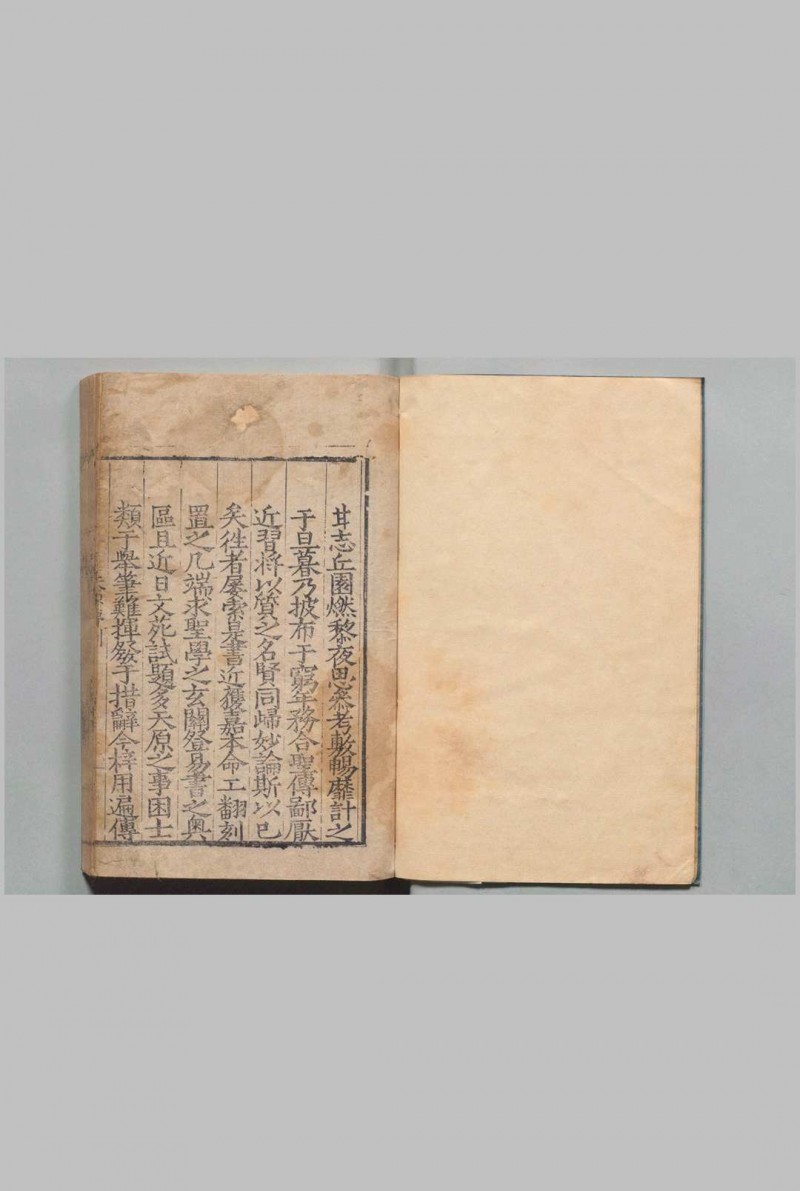 甘志丘園燃黎夜思叅考敷暢靡計之
于旦暮乃披布于窮年務合聖傳鄙厭
近習將以質之名賢同歸妙論斯以已
矣徃者屡索是書近獲嘉本命工翻刻
置之几端求聖學之玄關登易書之奥
區且近日文苑試題多天原之事困士
類于舉筆難揮發于措辭今梓用遍傳